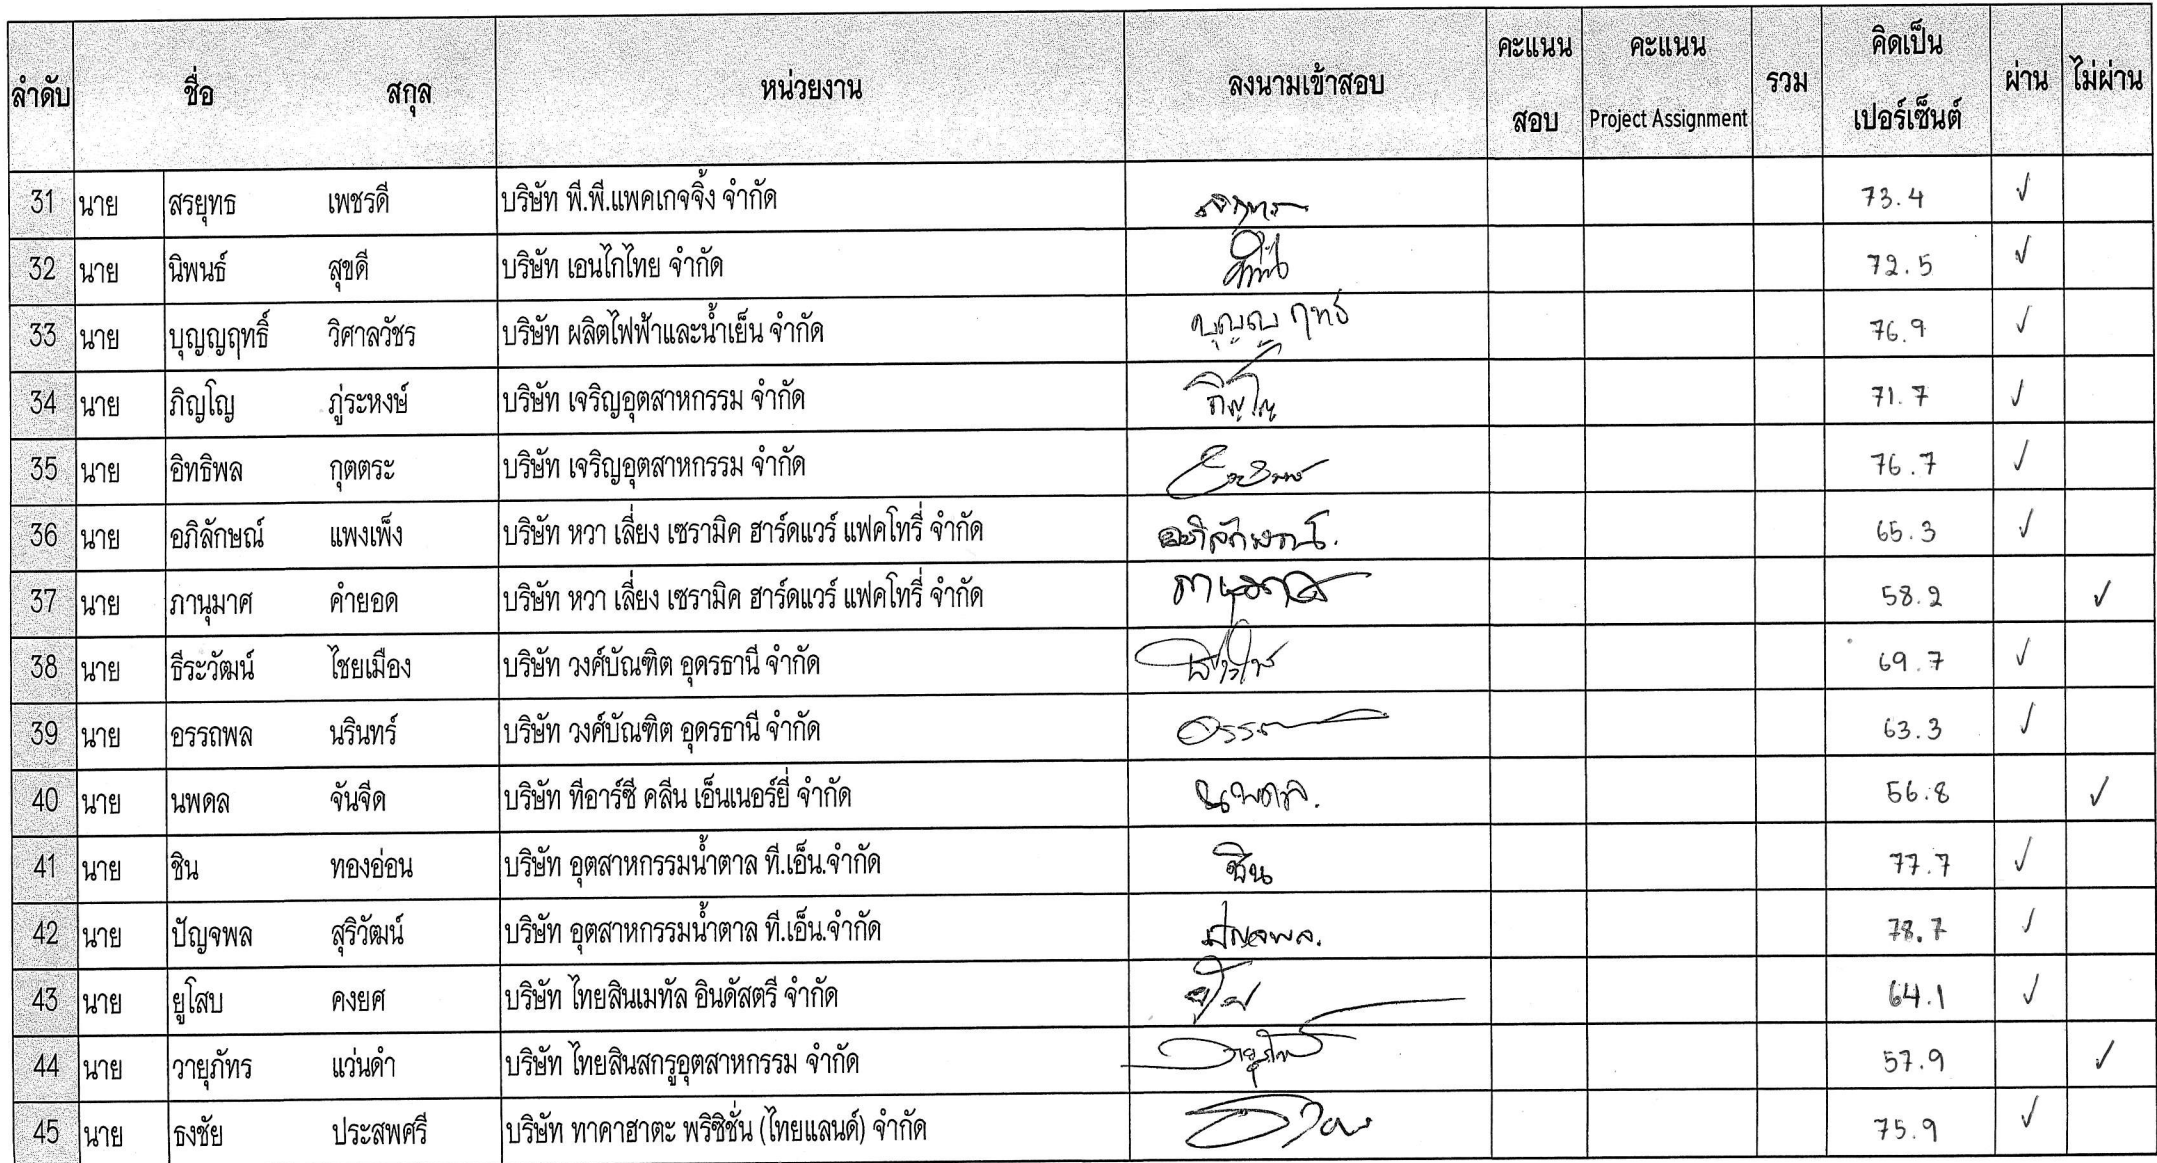 ลำดับ ชื่อ สกุล หน่วยงาน ลงนามเข้าสอบ คะแนน สอบ คะแนน Project Assignment รวม คิดเป็น เปอร์เซ็นต์ ผ่าน ไม่ผ่าน
31 นาย สรยุทธ เพชรดี บริษัท พี.พี.แพคเกจจิ้ง จำกัด 73.4 ✓
32 นาย นิพนธ์ สุขดี บริษัท เอนไกไทย จำกัด 72.5 ✓
33 นาย บุญญฤทธิ์ วิศาลวัชร บริษัท ผลิตไฟฟ้าและน้ำเย็น จำกัด บุญญฤทธิ์ 76.9 ✓
34 นาย ภิญโญ ภู่ระหงษ์ บริษัท เจริญอุตสาหกรรม จำกัด ภิญโญ 71.7 ✓
35 นาย อิทธิพล กุตตระ บริษัท เจริญอุตสาหกรรม จำกัด 76.7 ✓
36 นาย อภิลักษณ์ แพงเพ็ง บริษัท หวา เลี่ยง เซรามิค ฮาร์ดแวร์ แฟคโทรี่ จำกัด อภิลักษณ์. 65.3 ✓
37 นาย ภานุมาศ คำยอด บริษัท หวา เลี่ยง เซรามิค ฮาร์ดแวร์ แฟคโทรี่ จำกัด ภานุมาศ 58.2 ✓
38 นาย ธีระวัฒน์ ไชยเมือง บริษัท วงศ์บัณฑิต อุดรธานี จำกัด 69.7 ✓
39 นาย อรรถพล นรินทร์ บริษัท วงศ์บัณฑิต อุดรธานี จำกัด 63.3 ✓
40 นาย นพดล จันจีด บริษัท ทีอาร์ซี คลีน เอ็นเนอร์ยี่ จำกัด นพดล. 56.8 ✓
41 นาย ชิน ทองอ่อน บริษัท อุตสาหกรรมน้ำตาล ที.เอ็น.จำกัด ชิน 77.7 ✓
42 นาย ปัญจพล สุริวัฒน์ บริษัท อุตสาหกรรมน้ำตาล ที.เอ็น.จำกัด ปัญจพล. 78.7 ✓
43 นาย ยูโสบ คงยศ บริษัท ไทยสินเมทัล อินดัสตรี จำกัด 64.1 ✓
44 นาย วายุภัทร แว่นดำ บริษัท ไทยสินสกรูอุตสาหกรรม จำกัด 57.9 ✓
45 นาย ธงชัย ประสพศรี บริษัท ทาคาฮาตะ พริซิชั่น (ไทยแลนด์) จำกัด 75.9 ✓